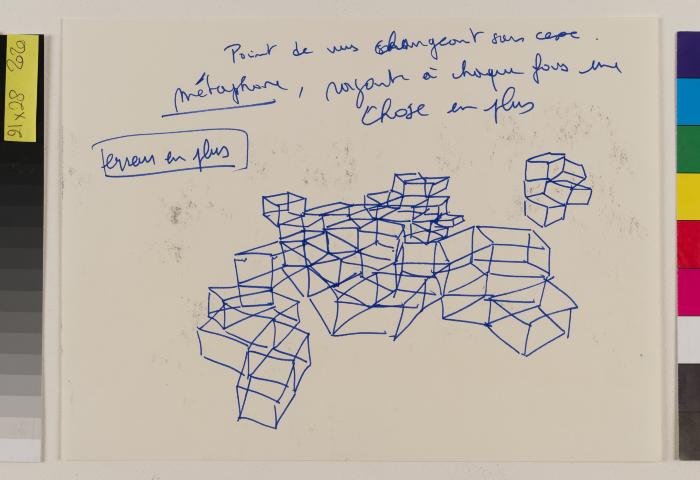 Point de vus changeant sans cesse.
métaphore, rajoute à chaque fois une
chose en plus
terrain en plus
21 x 28